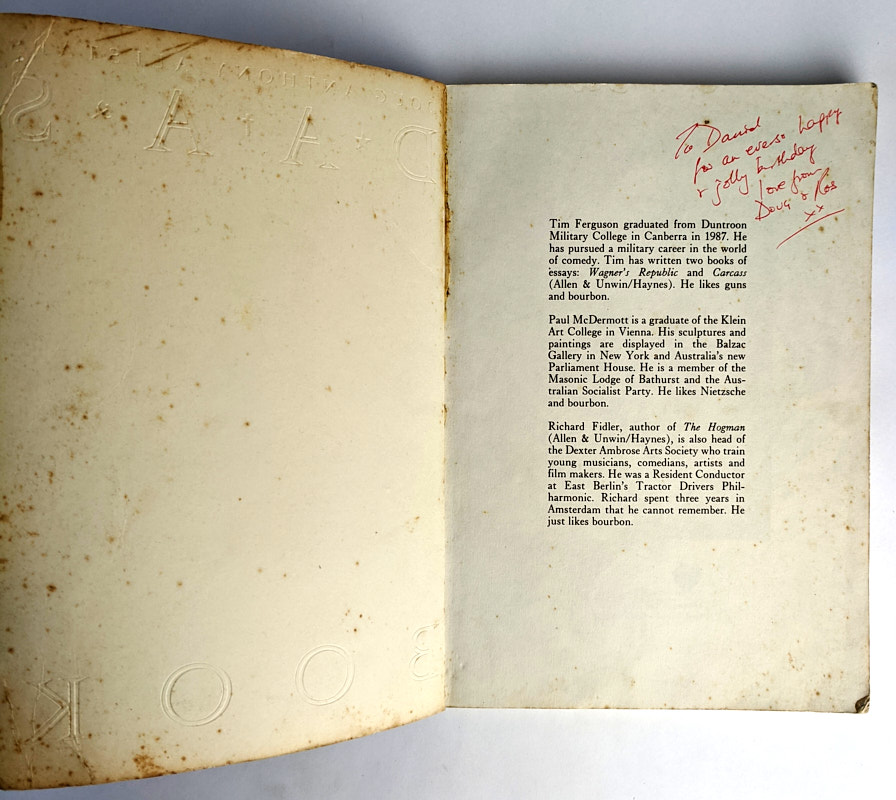 D·A·A·S
BOOK
To Daniel
for an ever so happy
& jolly birthday
love from
Doug & Ros
xx
Tim Ferguson graduated from Duntroon
Military College in Canberra in 1987. He
has pursued a military career in the world
of comedy. Tim has written two books of
essays: Wagner's Republic and Carcass
(Allen & Unwin/Haynes). He likes guns
and bourbon.
Paul McDermott is a graduate of the Klein
Art College in Vienna. His sculptures and
paintings are displayed in the Balzac
Gallery in New York and Australia's new
Parliament House. He is a member of the
Masonic Lodge of Bathurst and the Aus-
tralian Socialist Party. He likes Nietzsche
and bourbon.
Richard Fidler, author of The Hogman
(Allen & Unwin/Haynes), is also head of
the Dexter Ambrose Arts Society who train
young musicians, comedians, artists and
film makers. He was a Resident Conductor
at East Berlin's Tractor Drivers Phil-
harmonic. Richard spent three years in
Amsterdam that he cannot remember. He
just likes bourbon.